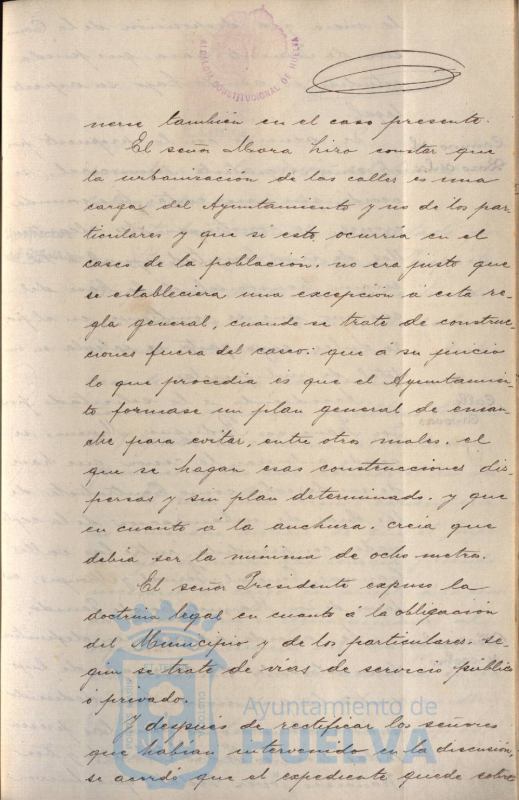 ALCALDIA CONSTITUCIONAL DE HUELVA
nerse también en el caso presente.
El señor Mora hizo constar que
la urbanización de las calles es una
carga del Ayuntamiento y no de los par-
ticulares y que si esto, ocurría en el
casco de la población, no era justo que
se estableciera una excepción á esta re-
gla general, cuando se trate de construc-
ciones fuera del casco: que á su juicio
lo que procedia es que el Ayuntamien-
to formase un plan general de ensan-
che para evitar, entre otros males, el
que se hagan esas construcciones dis-
persas y sin plan determinado, y que
en cuanto á la anchura, creia que
debia ser la mínima de ocho metros.
El señor Presidente expuso la
doctrina legal en cuanto á la obligación
del Municipio y de los particulares, se-
gún se trate de vias de servicio público
ó privado.
Y después de rectificar los señores
que habían intervenido en la discusión,
se acordó que el expediente quede sobre
Ayuntamiento de
HUELVA